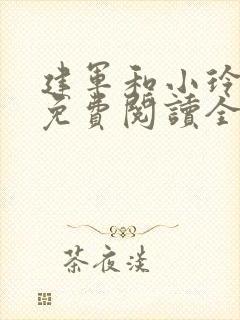 建軍和小玲
免費閱讀全
茶夜淡